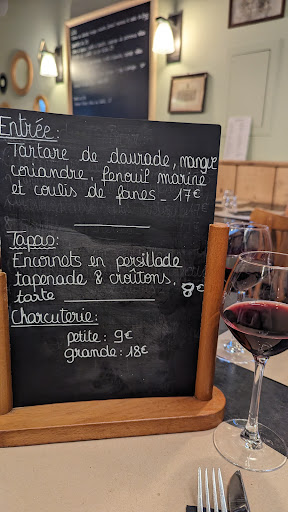 Entrée:
Tartare de daurade, mangue
coriandre, fenouil mariné
et coulis de fanes - 17€
Tapas:
Encornets en persillade
tapenade & croûtons.
tarte 8€
Charcuterie:
petite: 9€
grande: 18€